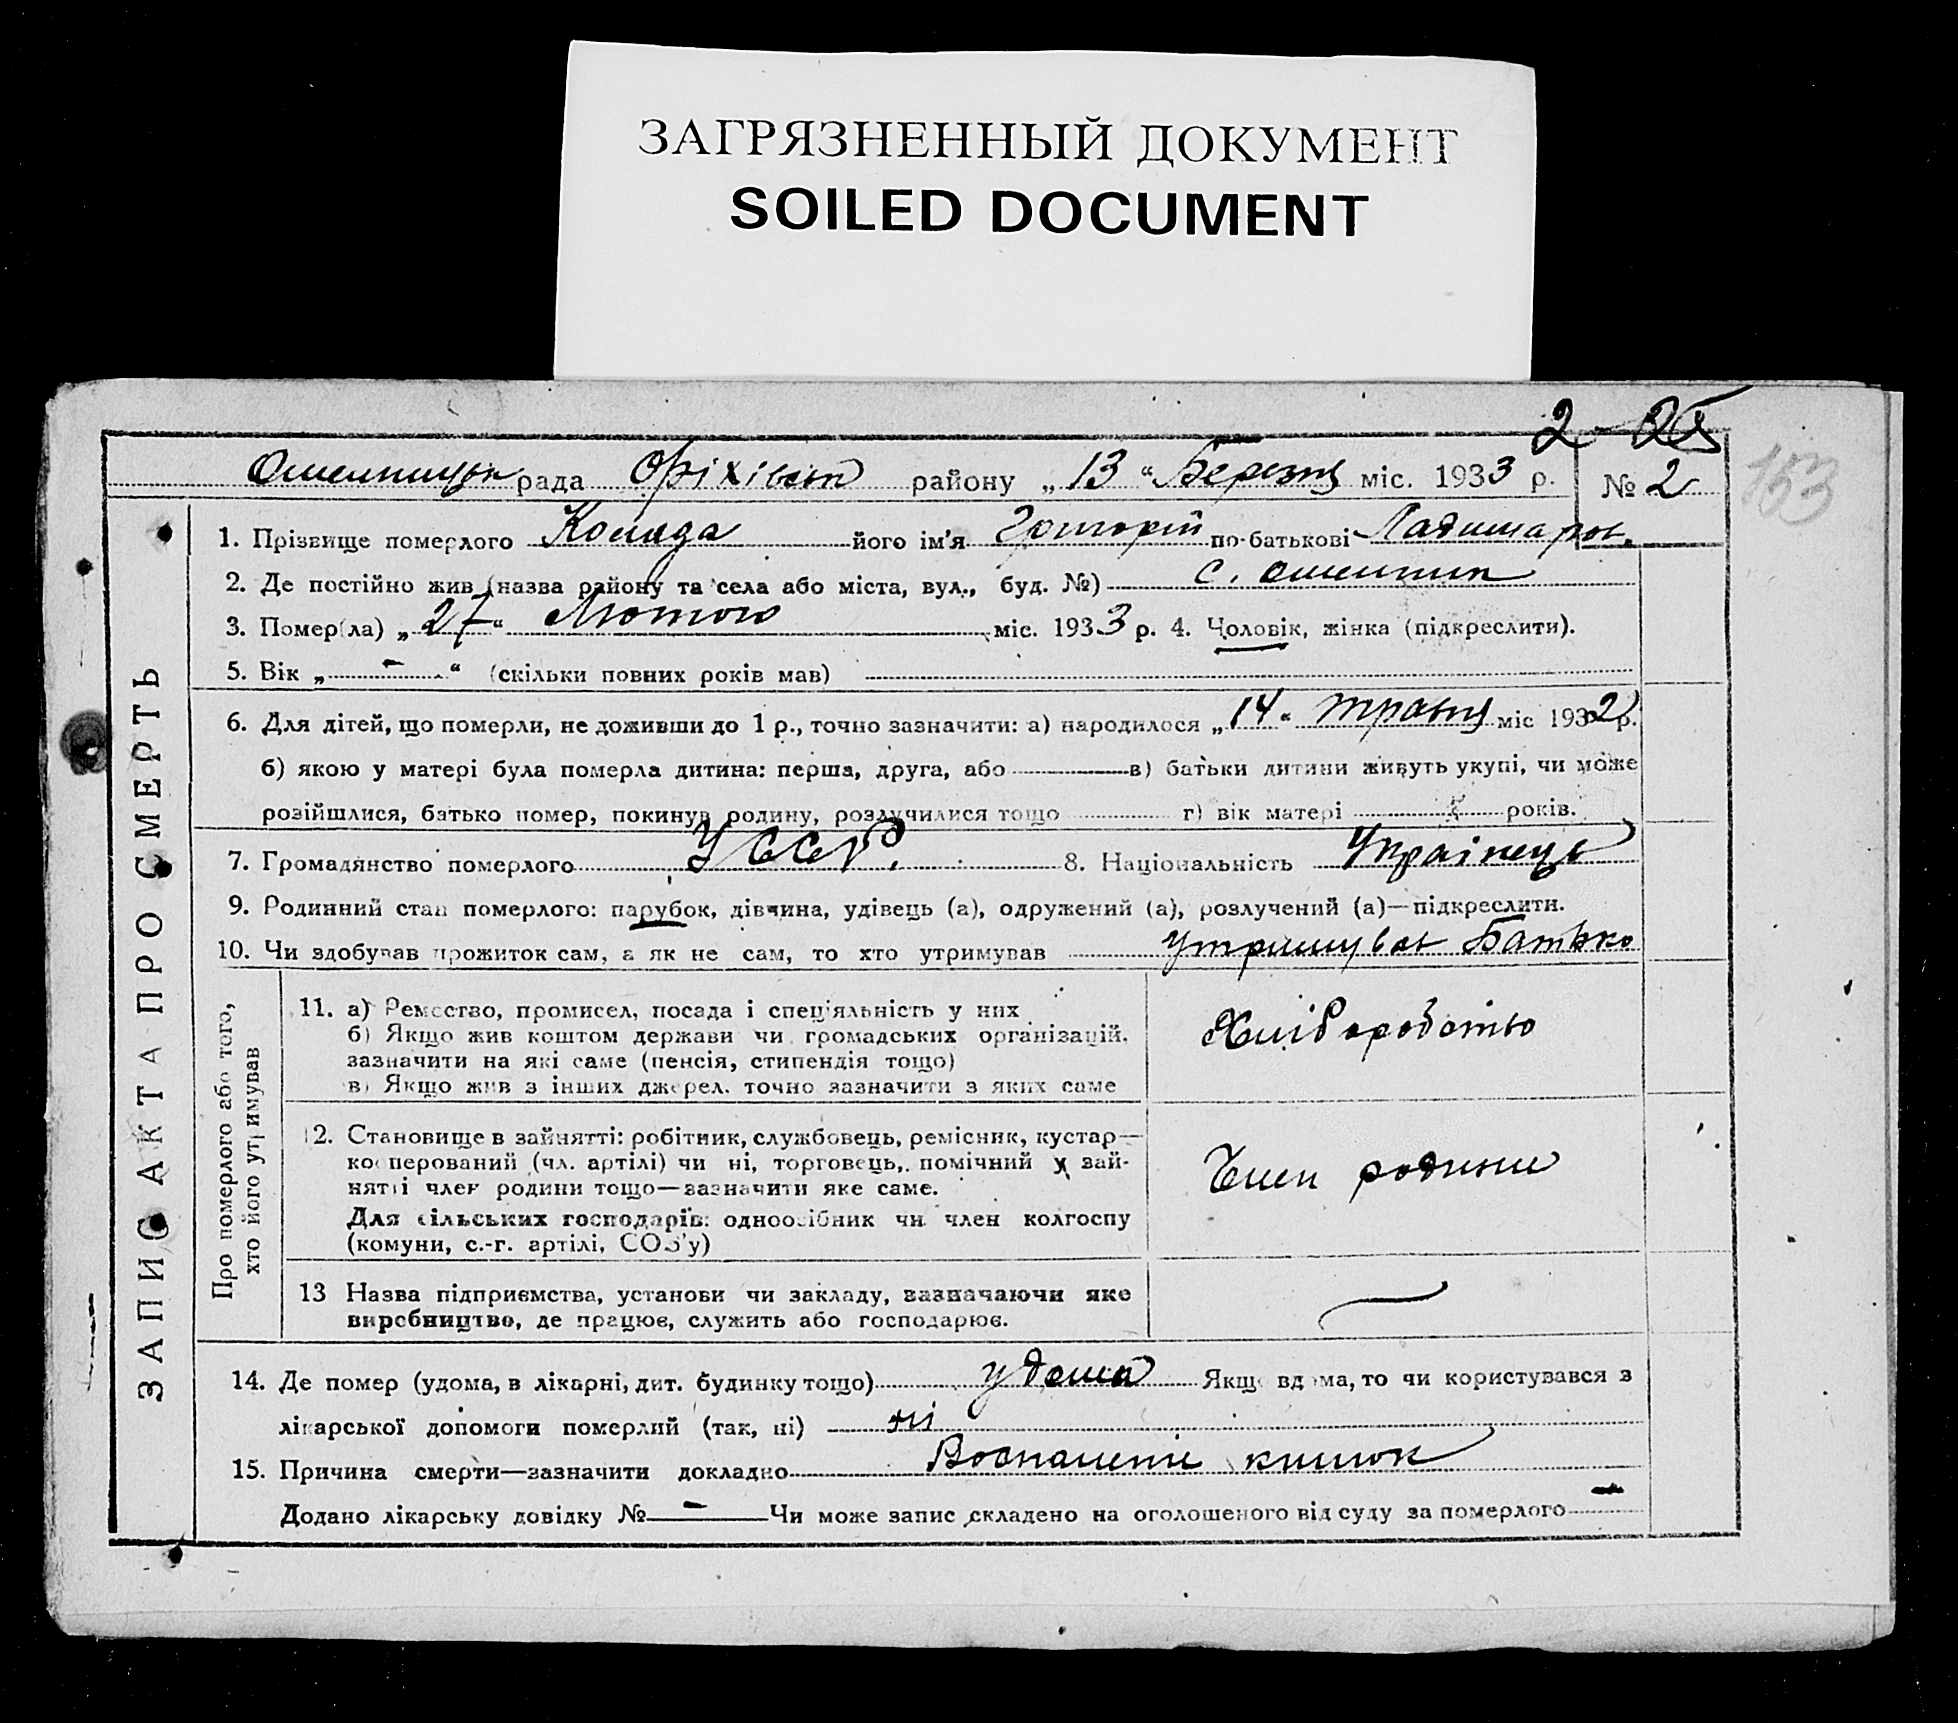 ЗАГРЯЗНЕННЫЙ ДОКУМЕНТ
SOILED DOCUMENT
2
153
рада Оріхівськ району „13“ Березня міс. 1933 р. № 2
ЗАПИС АКТА ПРО СМЕРТЬ
1. Прізвище померлого Коляда його ім'я Григорій по-батькові
2. Де постійно жив (назва району та села або міста, вул., буд. №) с.
3. Помер(ла) „27“ Лютого міс. 1933 р. 4. Чоловік, жінка (підкреслити).
5. Вік „ - “ (скільки повних років мав)
6. Для дітей, що померли, не доживши до 1 р., точно зазначити: а) народилося „14“ травня міс 1932 р.
б) якою у матері була померла дитина: перша, друга, або в) батьки дитини живуть укупі, чи може
розійшлися, батько помер, покинув родину, розлучилися тощо г) вік матері років.
7. Громадянство померлого УССР. 8. Національність Українець
9. Родинний стан померлого: парубок, дівчина, удівець (а), одружений (а), розлучений (а)—підкреслити.
10. Чи здобував прожиток сам, а як не сам, то хто утримував утримував Батько
Про померлого або того,
хто його утримував
11. а) Ремество, промисел, посада і спеціяльність у них
б) Якщо жив коштом держави чи громадських організацій,
зазначити на які саме (пенсія, стипендія тощо)
в) Якщо жив з інших джерел. точно зазначити з яких саме
Хліборобство
12. Становище в зайнятті: робітник, службовець, ремісник, кустар—
коперований (чл. артілі) чи ні, торговець, помічний у зай-
нятті член родини тощо—зазначити яке саме.
Для сільських господарів: одноосібник чи член колгоспу
(комуни, с.-г. артілі, СОЗ'у)
Член родини
13 Назва підприємства, установи чи закладу, зазначаючи яке
виробництво, де працює, служить або господарює.
14. Де помер (удома, в лікарні, дит. будинку тощо) удома Якщо вдома, то чи користувався з
лікарської допомоги померлий (так, ні) ні
15. Причина смерти—зазначити докладно Воспаленіє кишок
Додано лікарську довідку № - Чи може запис складено на оголошеного від суду за померлого -